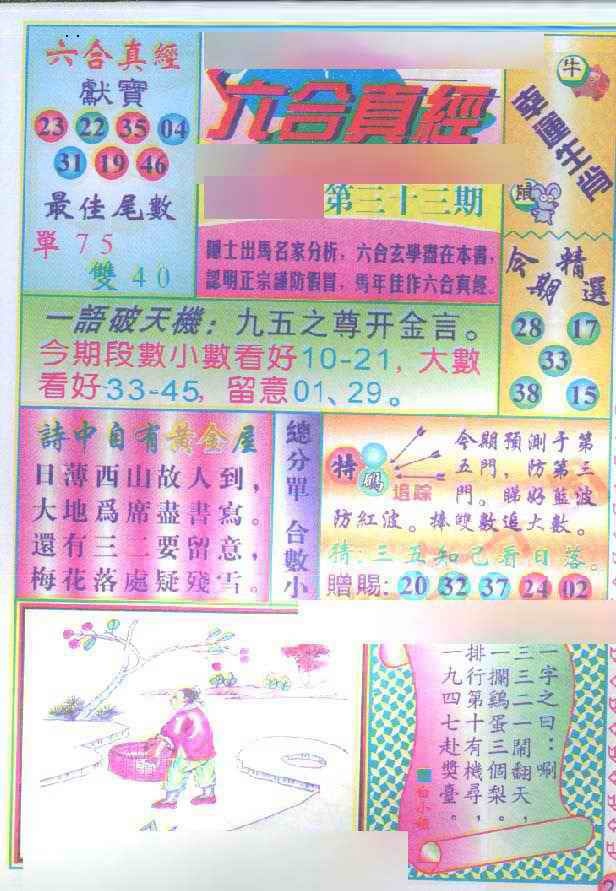 六合真經
獻寶
23 22 35 04
31 19 46
最佳尾數
單 75
雙 40
六合真經
第三十三期
隱士出馬名家分析，六合玄學盡在本書，
認明正宗謹防假冒，馬年佳作六合真經。
牛
幸運生肖
鼠
今期精選
28 17
33
38 15
一語破天機：九五之尊开金言。
今期段數小數看好10-21，大數
看好33-45，留意01、29。
詩中自有黃金屋
日薄西山故人到，
大地爲席盡書寫。
還有三二要留意，
梅花落處疑殘雪。
總分單 合數小
特碼
追踪
今期預測于第
五門，防第三
門。睇好藍波
防紅波。捧雙數追大數。
猜：三五知己看日落。
贈賜：20 32 37 24 02
一字之曰：唰
三三二一鬧翻天，
一攔雞蛋三個梨。
排行第十有機尋，
一九四七赴獎臺。
白小姐